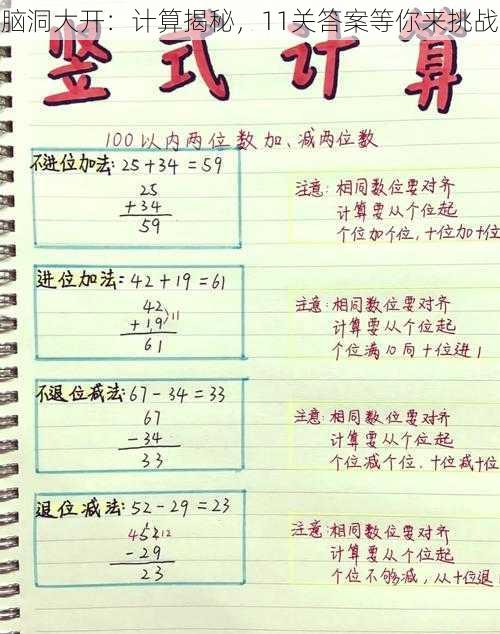 脑洞大开：计算揭秘，11关答案等你来挑战
竖式计算
100以内两位数加、减两位数
不进位加法：25+34=59
25
+34
59
注意：相同数位要对齐
计算要从个位起
个位加个位，十位加十位
进位加法：42+19=61
42
+19
11
61
注意：相同数位要对齐
计算要从个位起
个位满10向十位进1
不退位减法：67-34=33
67
-34
33
注意：相同数位要对齐
计算要从个位起
个位减个位，十位减十位
退位减法：52-29=23
45212
-29
23
注意：相同数位要对齐
计算要从个位起
个位不够减，从十位退1